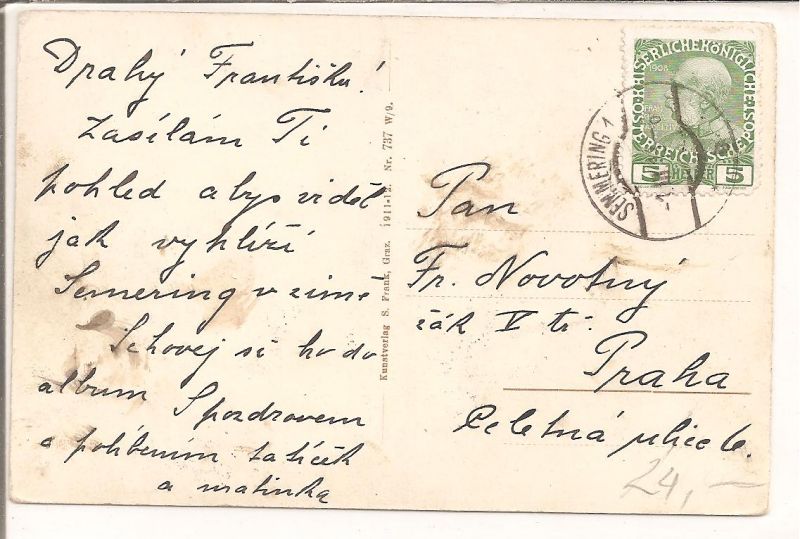 Drahý Františku!
Zasílám Ti
pohled abys viděl
jak vyhlíží
Semering v zimě
Schovej si ho do
album S pozdravem
a políbením tatíček
a matinka
Kunstverlag S. Frank, Graz. 1911-12. Nr. 737 W/9.
KAISERLICHE KÖNIGLICHE
ÖSTERREICHISCHE POST
1908
5 HELLER 5
SEMMERING 1
Pan
Fr. Novotný
žák V tř.
Praha
Celetná ulice 6.
24,—